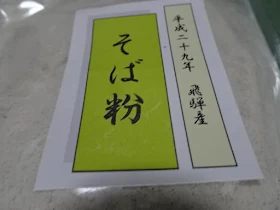 平成二十九年　飛騨産
そば粉